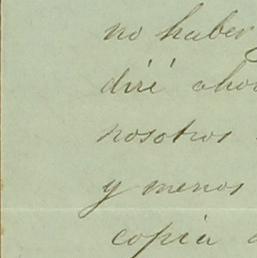 no haber
diré aho
nosotros
y menos
copia